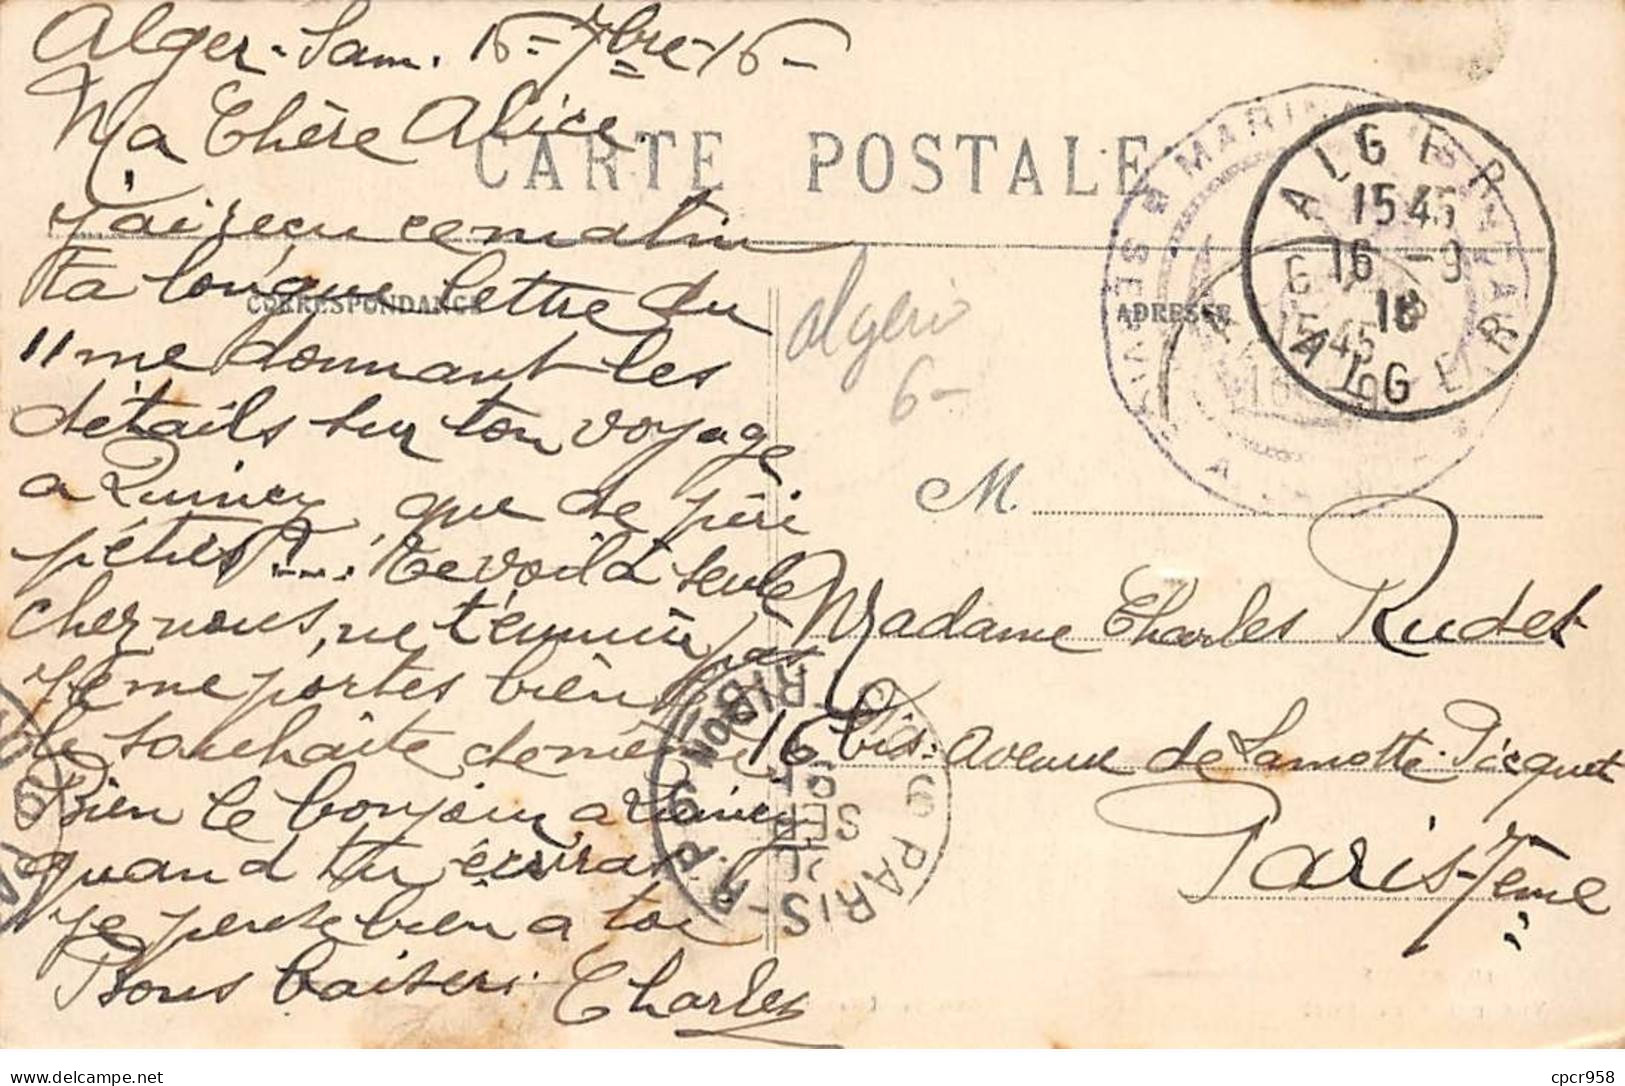 Alger - Sam. 16 = 7bre - 16 -
Ma Chère Alice
CARTE POSTALE
J'ai reçu ce matin
ta longue lettre du
CORRESPONDANCE
11 me donnant les
détails sur ton voyage
a Quincy que de péri
péties ?... ! te voilà seule
chez nous, ne t'ennuie pas
je me portes bien
te souhaite de même
Bien le bonjour a Quincy
quand tu écriras
je pense bien a toi
Bons baisers. Charles
algerie
6-
ADRESSE
M.
Madame Charles Rudet
16 bis. avenue de Lamotte. Picquet
Paris - 7ème
ALGER
15 45
16 - 9
16
ALGER
MARINE
PARIS
SEPT
20
cpcr958